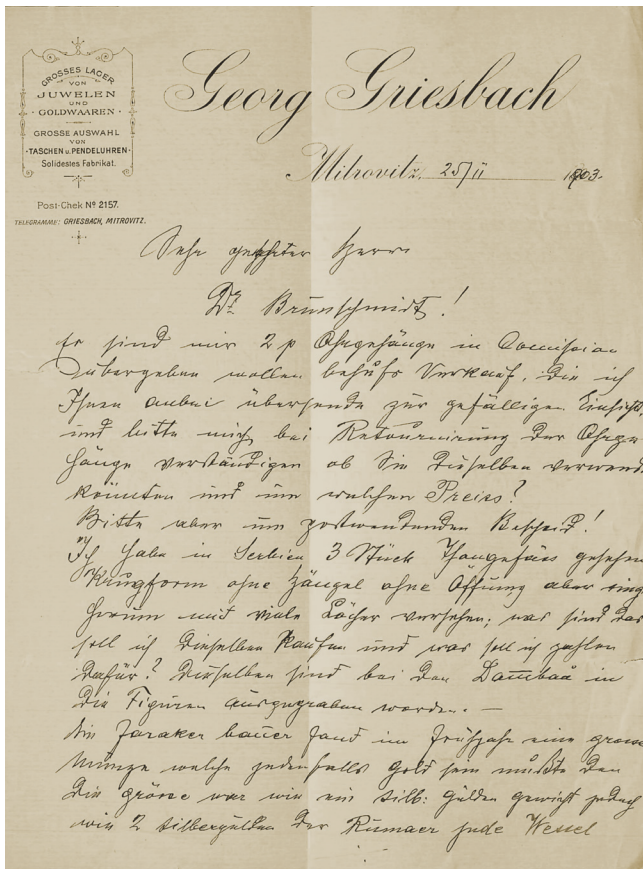 GROSSES LAGER
VON
JUWELEN
UND
GOLDWAAREN.
GROSSE AUSWAHL
VON
TASCHEN u. PENDELUHREN
Solidestes Fabrikat.
Post-Chek Nº 2157.
TELEGRAMME: GRIESBACH, MITROVITZ.
Georg Griesbach
Mitrovitz, 25/II 1903.
Sehr geehrter Herr
Dr. Brunschmidt!
Es sind mir 2 p Ohrgehänge in Comission
übergeben wollen behufs Verkauf, die ich
Ihnen anbei übersende zur gefälligen Einsicht,
und bitte mich bei Retournierung der Ohrge
hänge verständigen ob Sie dieselben verwend
könnten und um welchen Preiss?
Bitte aber um postwendenden Bescheid!
Ich habe in Serbien 3 Stück Thongefäss gesehen
Krugform ohne Hängel ohne Öffnung aber ring
herum mit viele Löcher versehen; was sind das
soll ich dieselben kaufen und was soll ich zahlen
dafür? Dieselben sind bei den in
die Figuren ausgegraben worden. —
Ein Jaraker bauer fand im Frühjahr eine grosse
Münze welche jedenfalls Gold sein müsste den
die grösse war wie ein silb: gulden gewicht jedoch
wie 2 silbergulden der Rumaer Jude Wessel